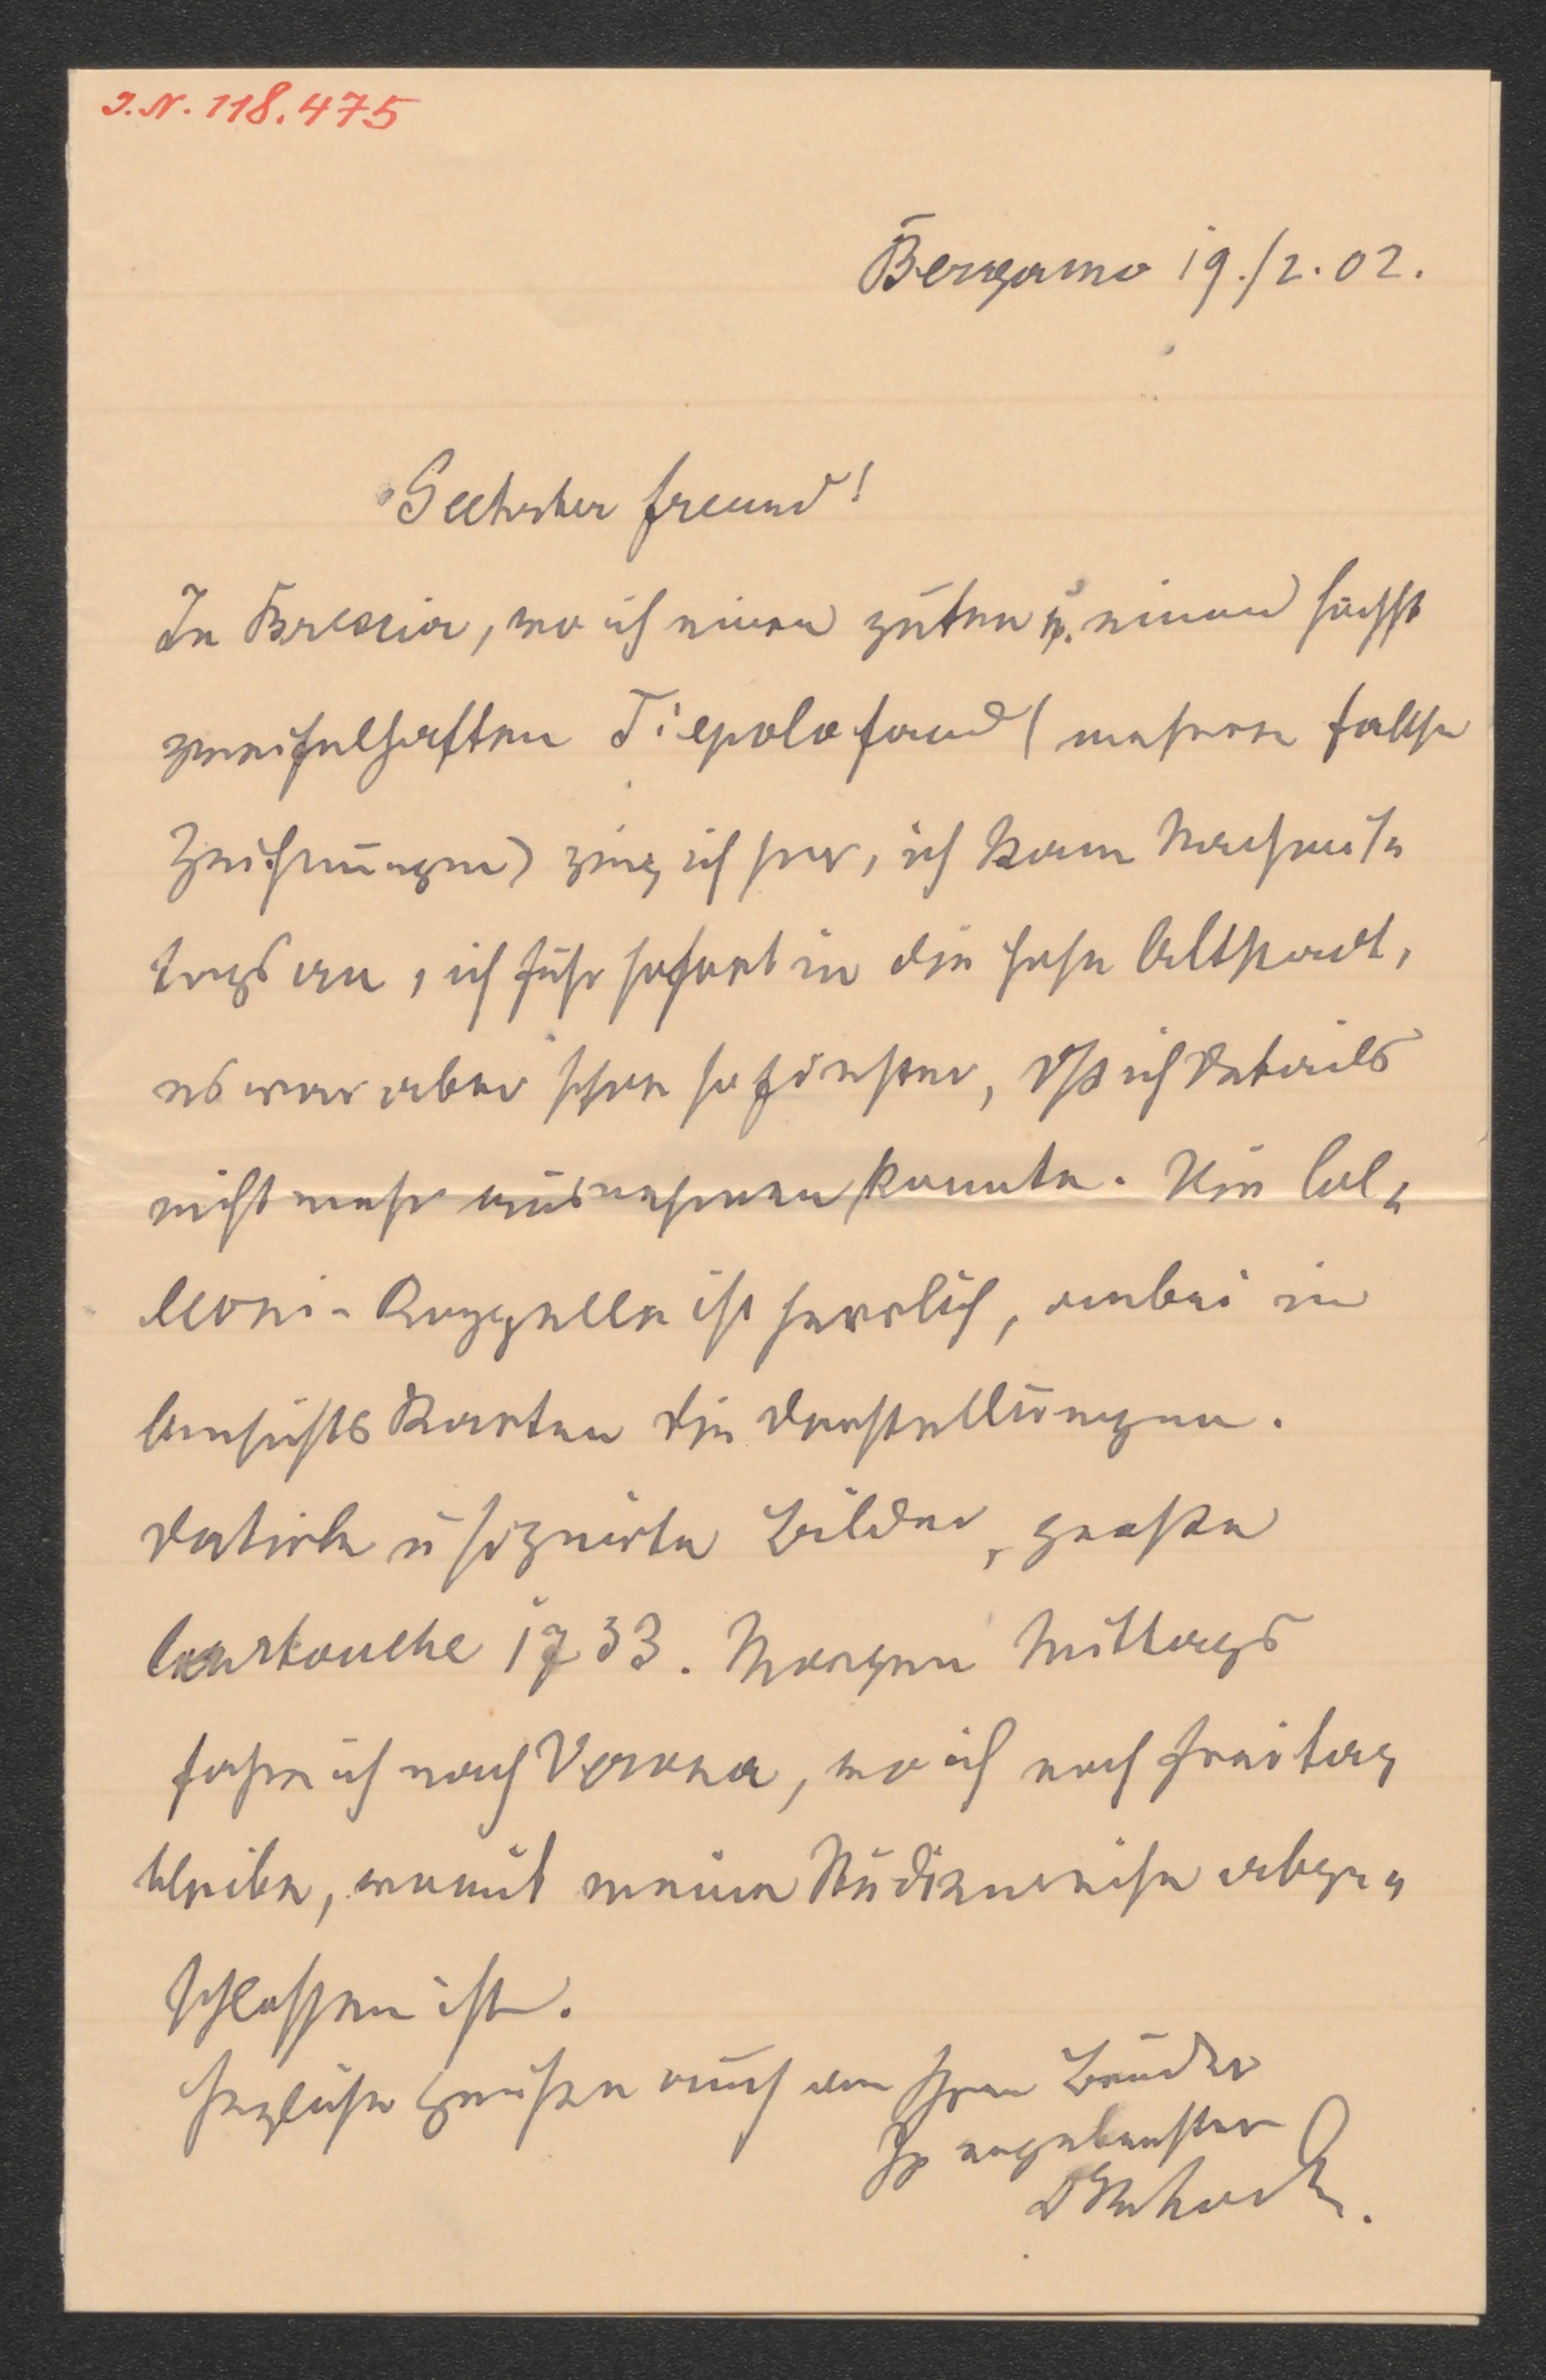 I.N. 118.475
Bergamo 19./2.02.
Geehrter Freund!
In Brescia, wo ich einen guten u. einen höchst
zweifelhaften Tiepolo fand (mehrere falsche
Zeichnungen) ging ich her, ich kam Nachmit„
tags an, ich fuhr sofort in die hohe Altstadt,
es war aber schon so finster, dß ich Details
nicht mehr ausnehmen konnte. Die Col„
leoni-Kappelle ist herrlich, anbei in
Ansichtskarten die Darstellungen.
Datirte u signirte Bilder, große
Cartouche 1733. Morgen Mittags
fahre ich nach Verona, wo ich noch Freitag
bleibe, womit meine Studienreise abge„
schlossen ist.
Herzliche Grüße auch an Ihren Bruder
Ihr ergebenster